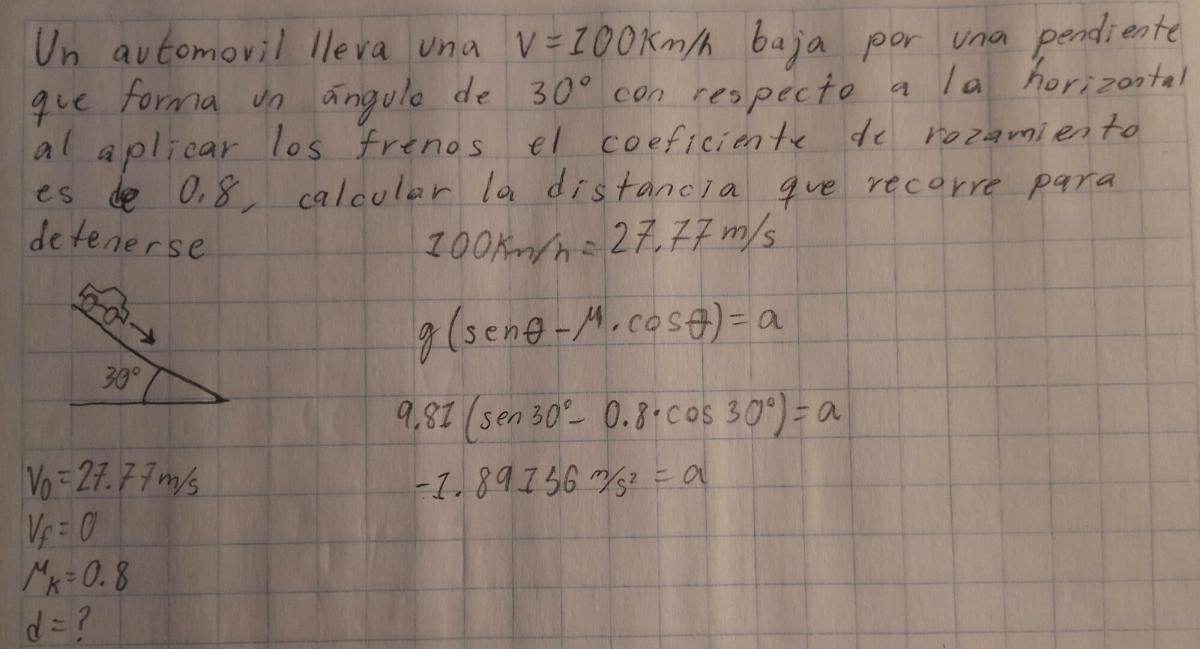 Un automovil lleva una V=100Km/h baja por una pendiente
que forma un ángulo de 30° con respecto a la horizontal
al aplicar los frenos el coeficiente de rozamiento
es de 0.8, calcular la distancia que recorre para
detenerse
100Km/h = 27.77 m/s
g(senθ - μ.cosθ) = a
30°
9.81 (sen 30° - 0.8·cos 30°) = a
V₀ = 27.77 m/s
-1.89156 m/s² = a
Vf = 0
μₖ = 0.8
d = ?